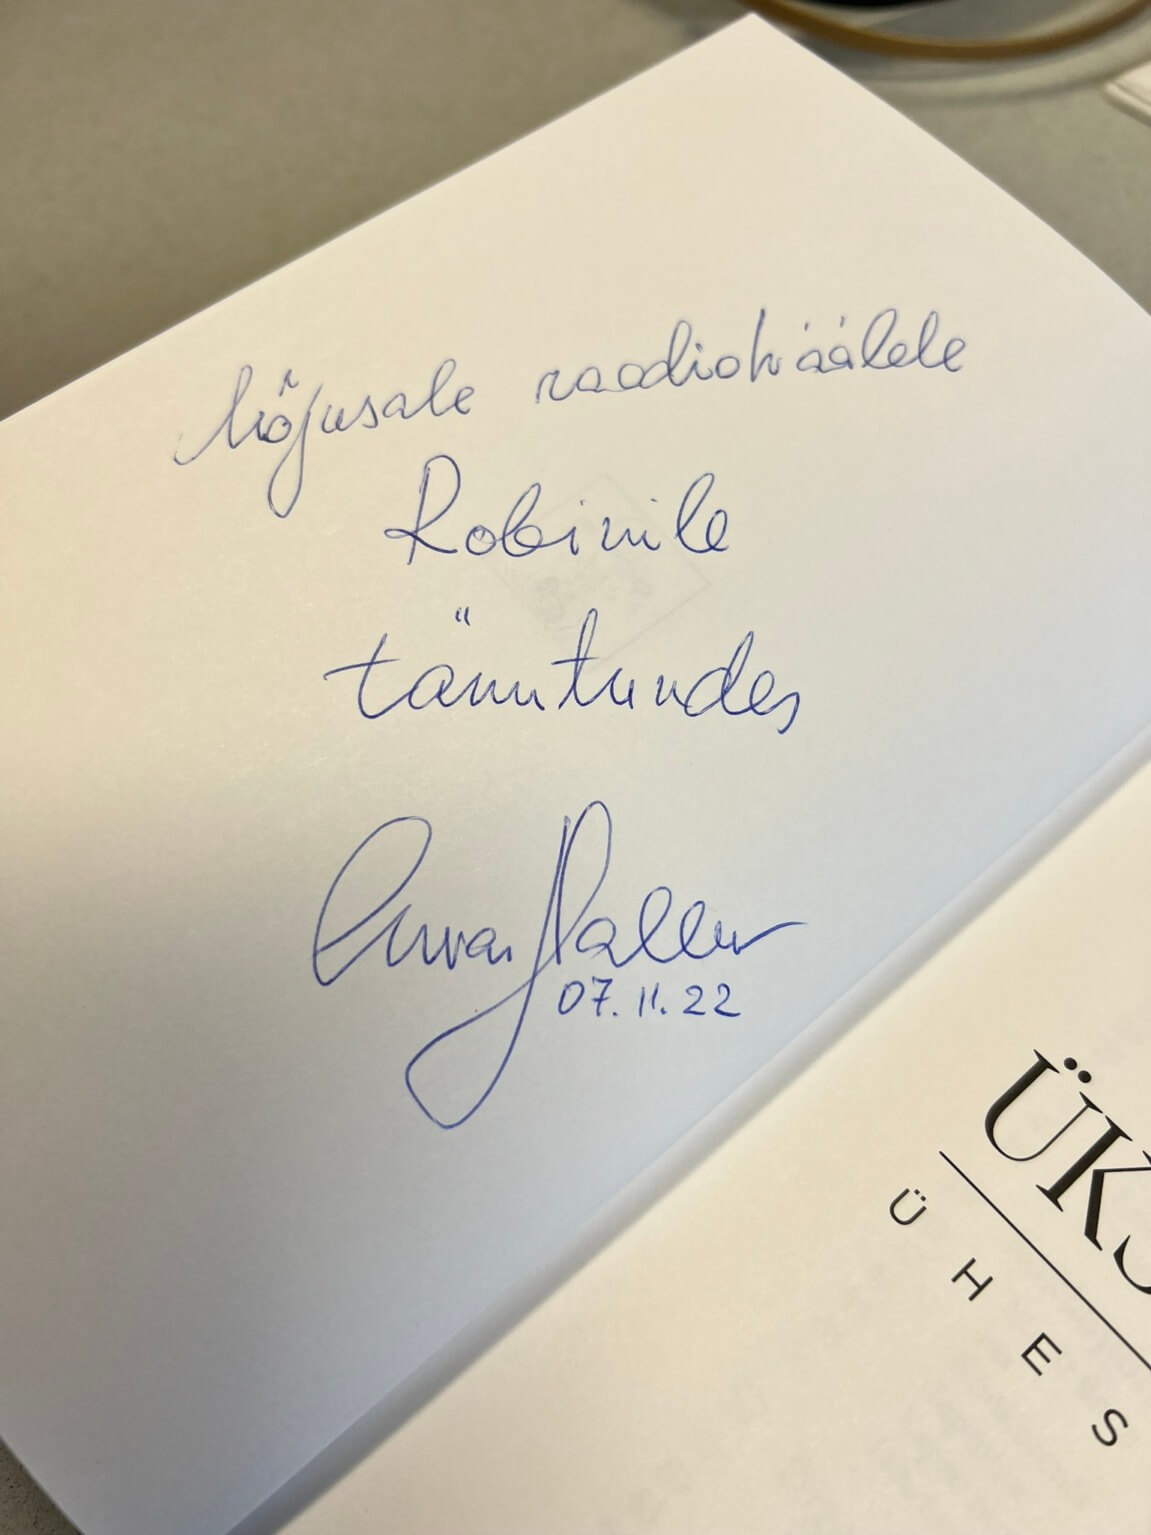 Mõjusale raadiohäälele
Robinile
tänutundes
07.11.22
ÜKS
ÜHES